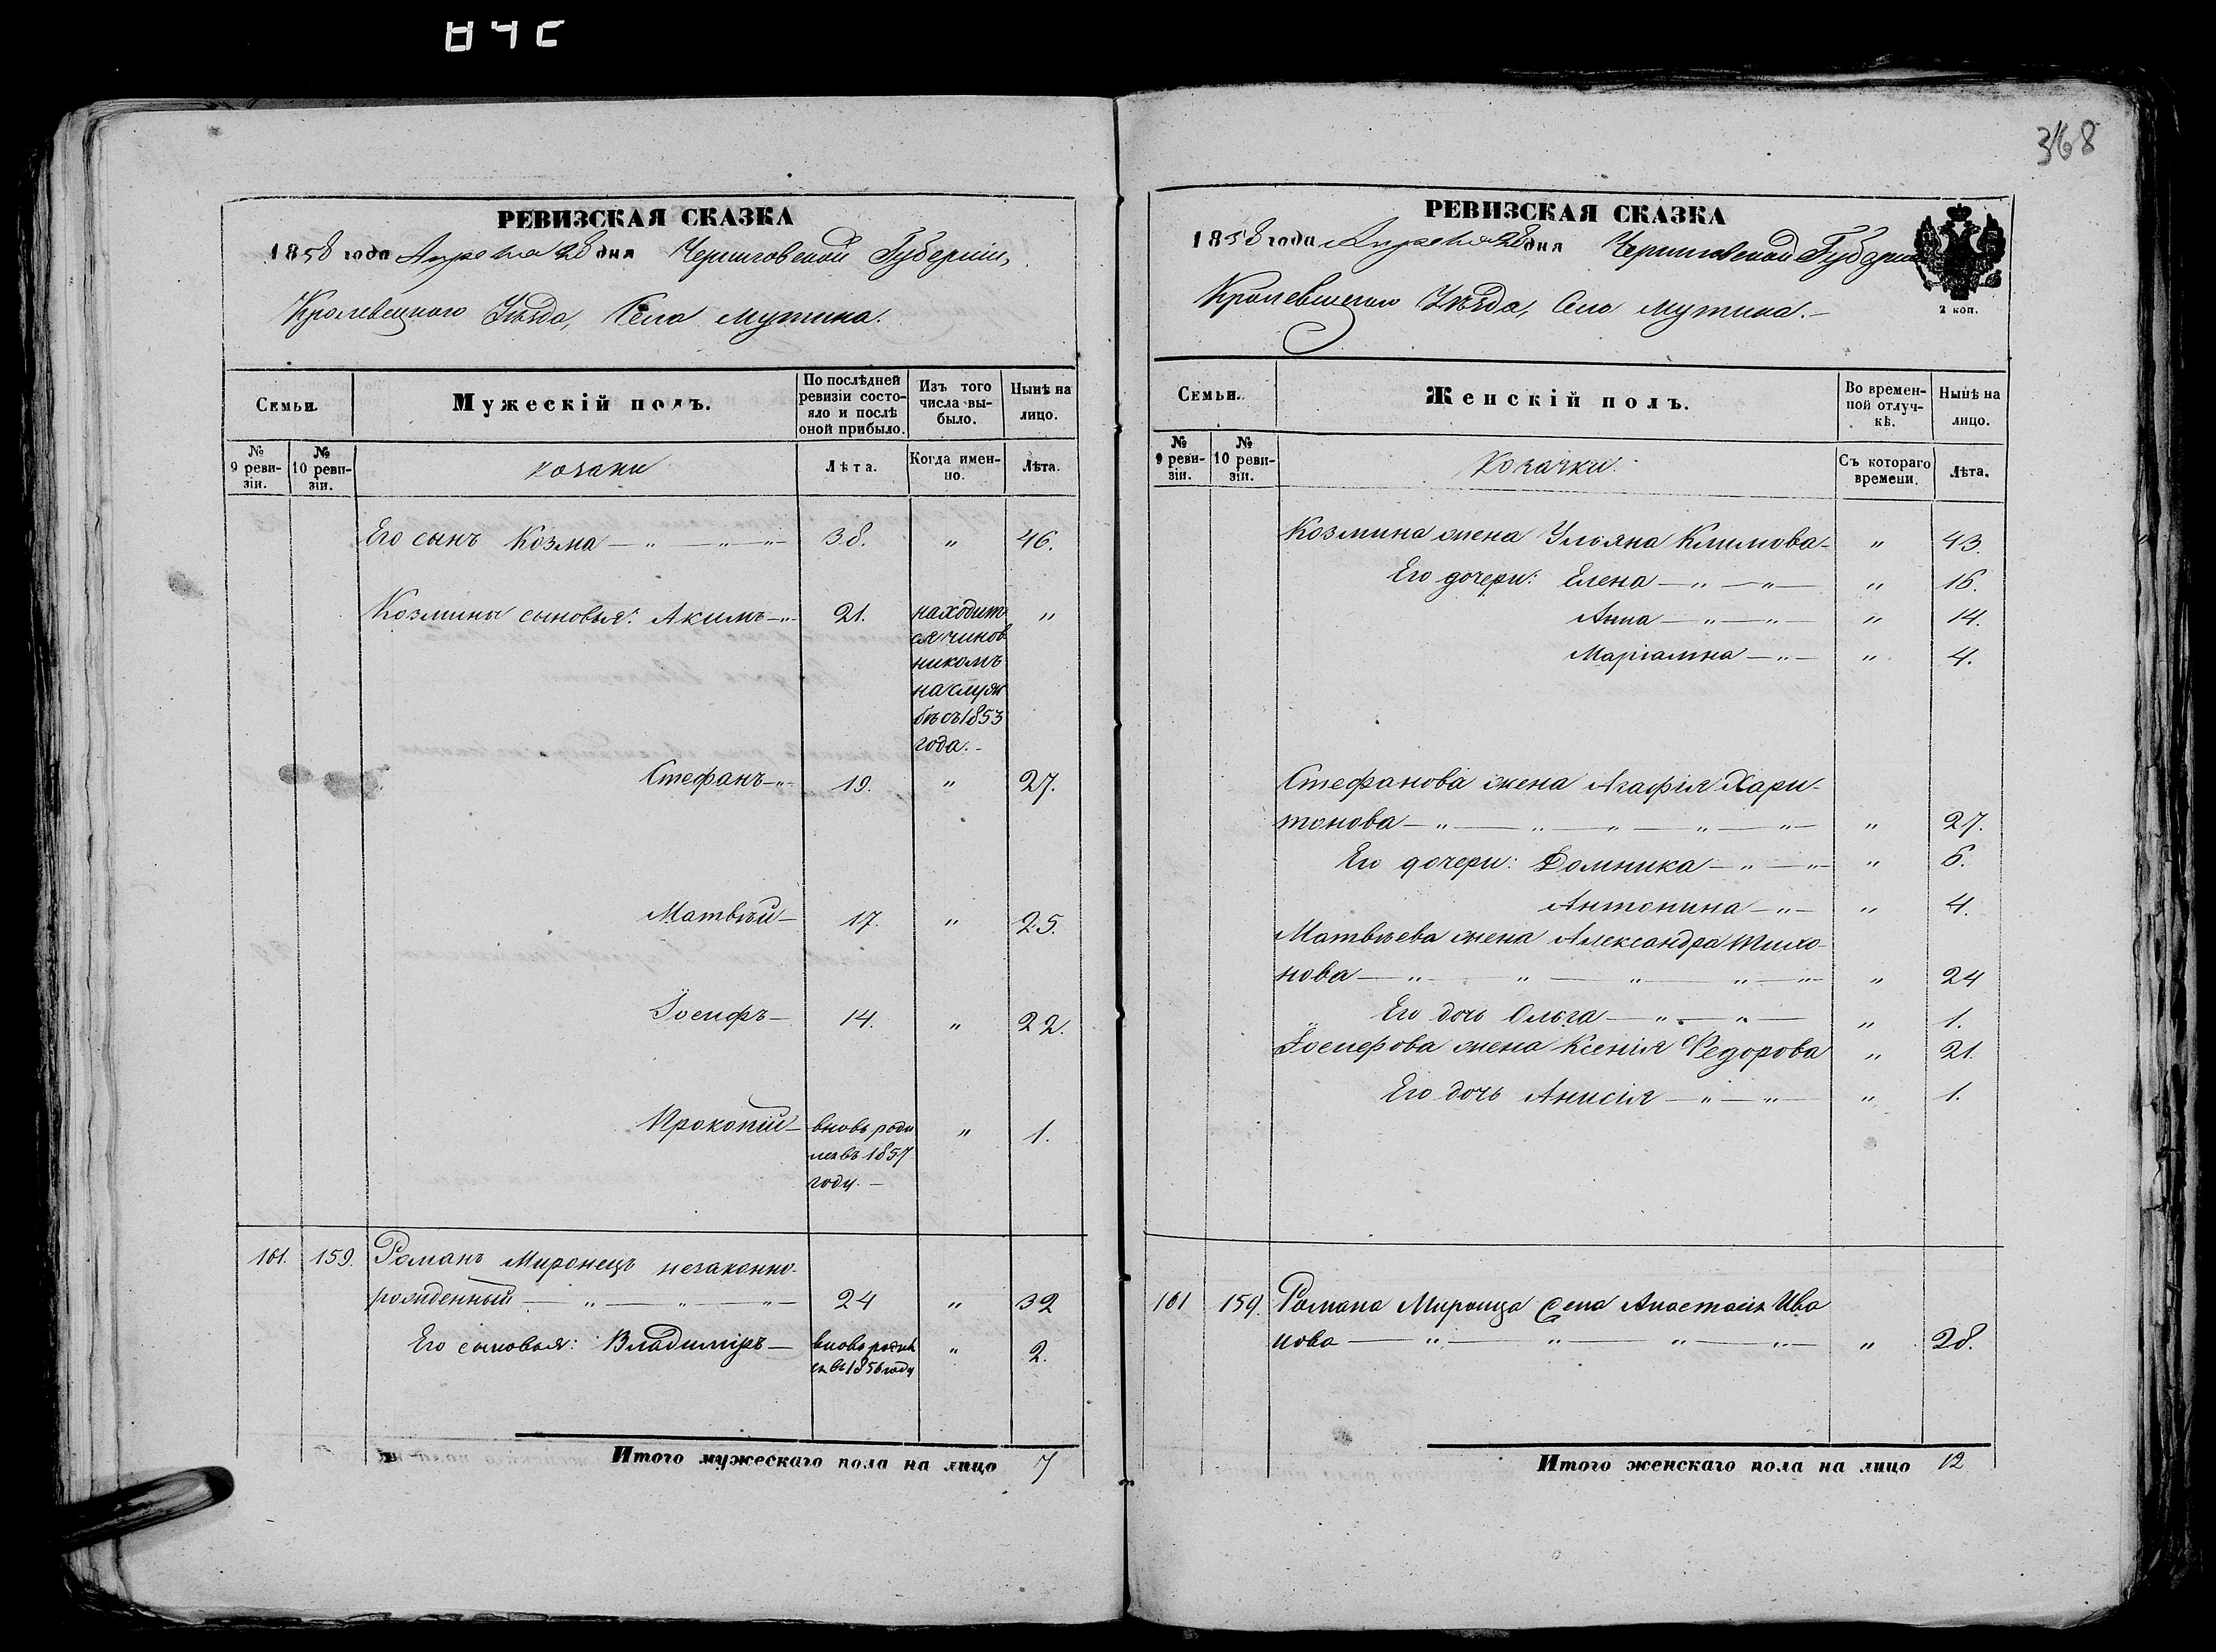 368
РЕВИЗСКАЯ СКАЗКА
1858 года Апреля 28 дня Черниговской Губерніи,
Кролевецкого Уѣзда, Села Мутина.
Семьи.
Мужескій полъ.
По послѣдней ревизіи состояло и послѣ оной прибыло.
Изъ того числа выбыло.
Нынѣ на лицо.
№ 9 ревизіи.
№ 10 ревизіи.
козаки
Лѣта.
Когда именно.
Лѣта.
Его сынъ Козма — " — " — " — 38. " 46.
Козмины сыновья: Акимъ — " — 21. находит "
ся чинов
никомъ
на служ
бѣ съ 1853
года. —
Стефанъ — " — 19. " 27.
Матвѣй — 17. " 25.
Іосифъ — 14. " 22.
Прокопій — вновь роди " 1.
лся въ 1857
году. —
161. 159. Романъ Миронецъ незаконно-
рожденный — " — " — " — 24 " 32
Его сыновья: Владиміръ — вновь родил " 2.
ся въ 1856 году
Итого мужескаго пола на лицо 7
РЕВИЗСКАЯ СКАЗКА
1858 года Апреля 28 дня Черниговской Губерніи
Кролевецкого Уѣзда, Села Мутина. —
2 коп.
Семьи.
Женскій полъ.
Во временной отлучкѣ.
Нынѣ на лицо.
№ 9 ревизіи.
№ 10 ревизіи.
Козачки.
Съ котораго времени.
Лѣта.
Козмина жена Ульяна Климова — " 43.
Его дочери: Елена — " — " — " 16.
Анна — " — " — " 14.
Маріамна — " — " 4.
Стефанова жена Агафія Хари-
тонова — " — " — " — " — " — " 27.
Его дочери: Домника — " — " — " 6.
Антонина — " — " 4.
Матвѣева жена Александра Тихо-
нова — " — " — " — " — " — " 24
Его дочь Ольга — " — " — " 1.
Іосифова жена Ксенія Федорова " 21.
Его дочь Анисія — " — " — " 1.
161 159. Романа Миронца жена Анастасія Ива
нова — " — " — " — " — " 28.
Итого женскаго пола на лицо 12